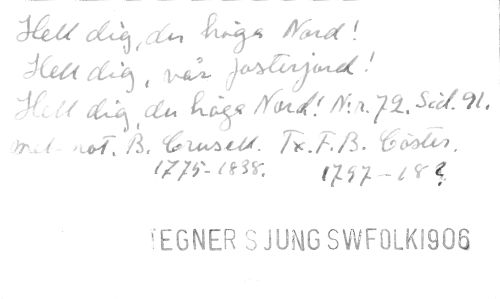 Hell dig, du höga Nord!
Hell dig, vår fosterjord!
Hell dig, du höga Nord! N:r. 72. Sid. 91.
mel. not. B. Crusell. Tx. F. B. Cöster.
1775-1838. 1797-18?
EGNER SJUNG SWFOLK1906